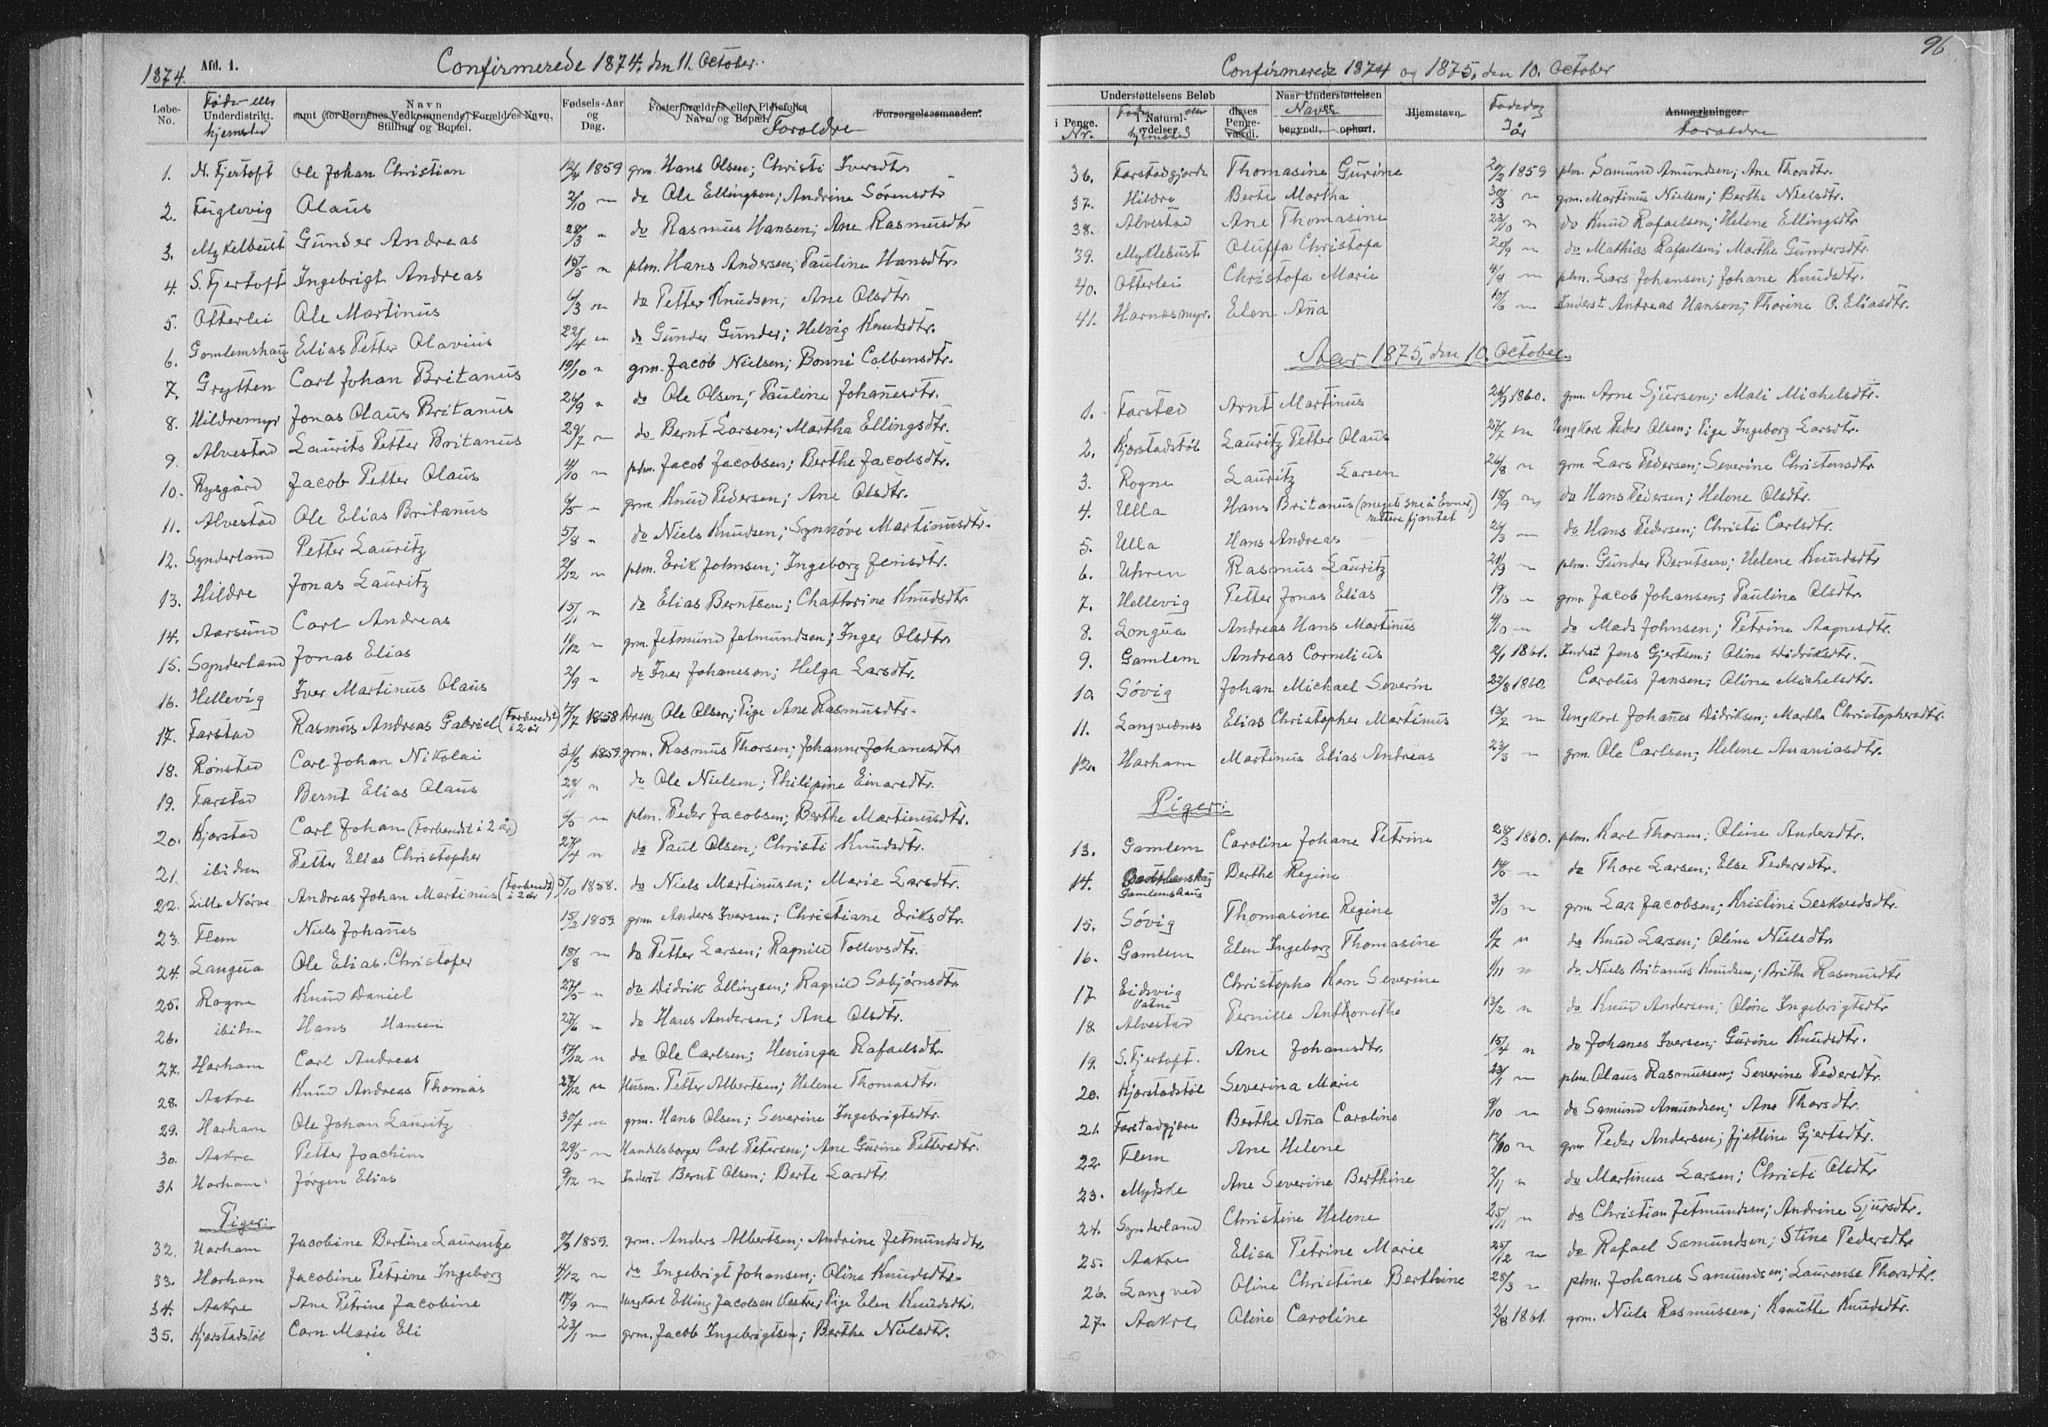 1874. Afd. 1. Confirmerede 1874, den 11. October.
Løbe-No. Føde eller Underdistrikt. hjemsted Navn samt (for Børnenes Vedkommende) Forældres Navn, Stilling og Bopæl. Fødsels-Aar og Dag. Fosterforældres eller Pleiefolks Navn og Bopæl. Foreldre Forsørgelsesmaaden.
1. N. Fjertoft Ole Johan Christian 1859 grm. Hans Olsen; Christi Iversdtr
2. Fuglevig Olaus 2/10 " do Ole Ellingsen; Andrine Sørensdtr
3. Myklebust Gunder Andreas 28/3 " do Rasmus Hansen; Ane Rasmusdtr
4. S. Fjertoft Ingebrigt Andreas 15/5 " plm. Hans Andersen; Pauline Hansdtr.
5. Otterlei Ole Martinus 6/3 " do Petter Knudsen; Ane Olsdtr.
6. Gamlemshaug Elias Petter Olavius 22/4 " do Gunder Gunder; Helvig Knutsdtr.
7. Grytten Carl Johan Britanus 19/10 " grm. Jacob Nielsen; Bonni Colbensdtr.
8. Hildremyr Jonas Olaus Britanus 26/9 " do Ole Olsen; Pauline Johanesdtr.
9. Alvestad Laurits Petter Britanus 29/7 " do Bernt Larsen; Martha Ellingsdtr.
10. Rysgård Jacob Petter Olaus 4/10 " plm. Jacob Jacobsen; Berthe Jacobsdtr.
11. Alvestad Ole Elias Britanus 6/5 " grm. Knud Pedersen; Ane Olsdtr.
12. Synderland Petter Lauritz 5/8 " do Niels Knudsen; Synnöve Martinusdtr.
13. Hildre Jonas Lauritz 21/12 " plm. Erik Johnsen; Ingeborg Jensdtr.
14. Aarsund Carl Andreas 15/1 " do Elias Berntsen; Chathrine Knudsdtr.
15. Synderland Jonas Elias 14/12 " grm. Jetmund Jetmundsen; Inger Olsdtr.
16. Hellevig Iver Martinus Olaus 2/9 " do Iver Johanesson; Helga Larsdtr.
17. Farstad Rasmus Andreas Gabriel (Forberedt i 2 år) 1858 Ole Olsen; Pige Ane Rasmusdtr.
18. Rønstad Carl Johan Nikolai 1859 grm. Rasmus Thorsen; Johanne Johanesdtr
19. Farstad Bernt Elias Olaus " do Ole Nielsen; Philipine Einarsdtr.
20. Kjorstad Carl Johan (Forberedt i 2 år) 6/5 " plm. Peder Jacobsen; Berthe Martinusdtr.
21. ibidem Petter Elias Christopher 27/4 " do Paul Olsen; Christi Knudsdtr.
22. Lille Nørve Andreas Johan Martinus (Forberedt i 2 år) 5/10 1858. do Niels Martinusen; Marie Larsdtr.
23. Flem Niels Johanes 15/2 1859 grm. Anders Iversen; Christiane Eriksdtr.
24. Langua Ole Elias Christofer 18/8 " do Petter Larsen; Ragnild Tollevsdtr.
25. Rogne Knud Daniel 27/5 " do Didrik Ellingsen; Ragnild Sebjørnsdtr.
26. ibidem Hans Hansen 27/6 " do Hans Andersen; Ane Olsdtr.
27. Harham Carl Andreas 17/12 " do Ole Carlsen; Heninga Rafaelsdtr.
28. Aakre Knud Andreas Thomas 27/12 " Husm. Petter Albertsen; Helene Thomasdtr.
29. Harham Ole Johan Lauritz 30/4 " grm. Hans Olsen; Severine Ingebrigtsdtr.
30. Aakre Petter Joachim 29/5 " Handelsborger Carl Petersen; Ane Gurine Pettersdtr.
31 Harham Jørgen Elias 9/12 " Inderst Bernt Olsen; Berte Larsdtr.
Piger:
32. Harham Jacobine Bertine Laurentze 1859. grm. Anders Albertsen; Andrine Jetmundsdtr.
33. Harham Jacobine Petrine Ingeborg 4/12 " do Ingebrigt Johansen; Oline Knudsdtr.
34. Aakre Ane Petrine Jacobine 17/9 " Ungkarl Elling Jacobsen Vestre; Pige Elen Knudsdtr.
35. Kjorstadstöl Carn Marie Eli 23/1 " grm. Jacob Ingebrigtsen; Berthe Nielsdtr.
96.
Confirmerede 1874 og 1875, den 10. October
Understøttelsens Beløb i Penge. Nr. Føde eller hjemsted i Natural-ydelser. disses Penge-værdi. Naar Understøttelsen Navn begyndt. ophørt. Hjemstavn. Fødsdag År Anmærkninger. Foreldre
36. Farstadgjerde Thomasine Gurine 20/2 1859 plm. Samund Amundsen; Ane Thorsdtr.
37. Hildre Berte Martha 30/3 " grm. Martinus Nielsen; Berthe Nielsdtr.
38. Alvestad Ane Thomasine 23/10 " do Knud Rafaelsen; Helene Ellingsdtr
39. Myklebust Oluffa Christofa 20/9 " do Mathias Rafaelsen; Marthe Gundersdtr.
40. Otterlei Christofa Marie 4/9 " plm. Lars Johansen; Johane Knudsdtr.
41. Harnesmyr. Elen Ana 17/6 " Inderst Andreas Hansen; Thorine O. Eliasdtr.
Aar 1875, den 10. October.
1. Farstad Arnt Martinus 1860. grm. Arne Sjursen; Mali Michelsdtr.
2. Kjorstadstöl Lauritz Petter Olaus 27/7 " Ungkarl Peder Olsen; Pige Ingeborg Larsdtr.
3. Rogne Lauritz Larsen 26/8 " grm Lars Pedersen; Severine Christensdtr
4. Ulla Hans Britanus (meget små Evner, fjantet 18/9 " do Hans Pedersen; Helene Olsdtr.
5. Ulla Hans Andreas 21/3 " do Hans Pedersen; Christi Carlsdtr.
6. Uhren Rasmus Lauritz 21/9 " plm. Gunder Berntsen; Helene Knudsdtr
7. Hellevig Petter Jonas Elias 19/10 " grm. Jacob Johansen; Pauline Olsdtr.
8. Longua Andreas Hans Martinus 4/10 " do Mads Johnsen; Petrine Aagnesdtr.
9. Gamlem Andreas Cornelius 2/1 1861. Inderst Jens Gjertsen; Oline Didriksdtr.
10 Søvig Johan Michael Severin 22/8 1860. Carolus Jensen; Oline Michelsdtr.
11. Langvednes Elias Christopher Martinus 13/2 " Ungkarl Johanes Didriksen; Martha Christophersdtr.
12. Harham Martinus Elias Andreas 23/3 " grm Ole Carlsen; Helene Ananiasdtr.
Piger:
13. Gamlem Caroline Johane Petrine 28/3 1860. plm. Karl Thorsen; Oline Andersdtr.
14. Gamlemshaug Berthe Regine 14/6 " do Thore Larsen; Else Pedersdtr.
15. Søvig Thomasine Regine 3/10 " grm. Lars Jacobsen; Kristine Seskvedsdtr.
16. Gamlem Elen Ingeborg Thomasine 1/7 " do Knud Larsen; Oline Nielsdtr.
17 Eidsvig Vatne Christopha Karn Severine 1/11 " do Niels Britanus Knudsen; Brithe Rasmusdtr
18. Alvestad Pernille Anthonethe 13/2 " do Knud Andersen; Oline Ingebrigtsdtr
19. S. Fjertoft. Ane Johanesdtr. 15/4 " do Johanes Iversen; Gurine Knudsdtr.
20. Kjorstadstöl Severina Marie 23/1 " plm. Olaus Rasmussen; Severine Pedersdtr.
21 Farstadgjære Berthe Ana Caroline 9/10 " do Samund Amundsen; Ane Thorsdtr.
22 Flem Ane Helene 12/10 " grm Peder Andersen; Fjelline Gjertsdtr.
23. Myskje Ane Severine Berthine 2/11 " do Martinus Larsen; Christi Olsdtr
24. Synderland Christine Helene 25/11 " do Christian Jetmundsen; Andrine Sjursdtr.
25. Aakre Elisa Petrine Marie 25/12 " do Rafael Samundsen; Stine Pedersdtr
26. Langved Oline Christine Berthine 28/3 " plm. Johanes Samundsen; Laurense Thorsdtr.
27. Aakre Oline Caroline 2/8 1861. grm. Niels Rasmussen; Knutte Knudsdtr.